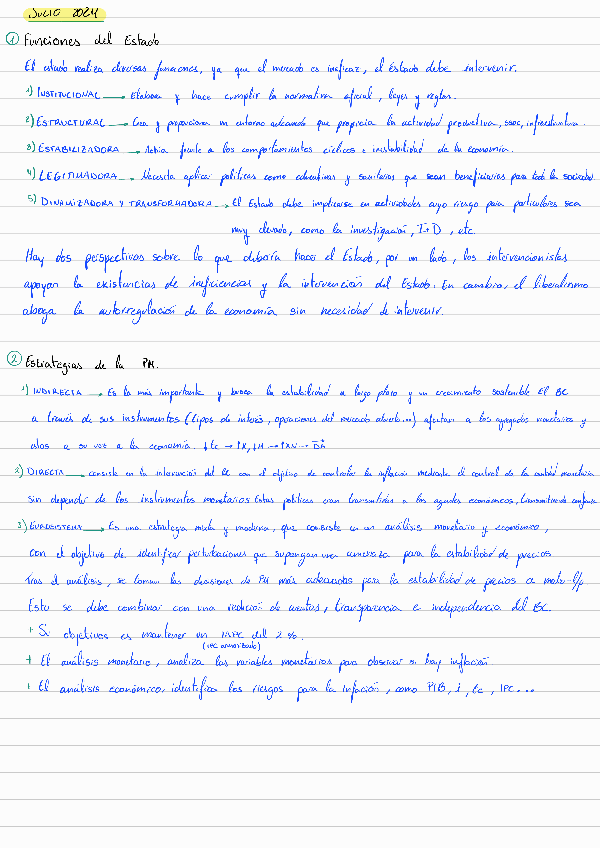 JULIO 2024
① Funciones del Estado
El estado realiza diversas funciones, ya que el mercado es ineficaz, el Estado debe intervenir.
1) INSTITUCIONAL → Elabora y hace cumplir la normativa oficial, leyes y reglas.
2) ESTRUCTURAL → Crea y proporciona un entorno adecuado que propicia la actividad productiva, ssoc, infraestructura.
3) ESTABILIZADORA → Actúa frente a los comportamientos cíclicos e inestabilidad de la economía.
4) LEGITIMADORA → Necesita aplicar políticas como educativas y sanitarias que sean beneficiarias para toda la sociedad.
5) DINAMIZADORA Y TRANSFORMADORA → El Estado debe implicarse en actividades cuyo riesgo para particulares sea
muy elevado, como la investigación, I+D, etc.
Hay dos perspectivas sobre lo que debería hacer el Estado, por un lado, los intervencionistas
apoyan la existencias de ineficiencias y la intervención del Estado. En cambio, el liberalismo
aboga la autorregulación de la economía sin necesidad de intervenir.
② Estrategias de la PM.
1) INDIRECTA → Es la más importante y busca la estabilidad a largo plazo y un crecimiento sostenible. El BC
a través de sus instrumentos (tipos de interés, operaciones del mercado abierto...) afectan a los agregados monetarios y
ellos a su vez a la economía. ↓tc → ↑X, ↓M → ↑XN →
2) DIRECTA → consiste en la intervención del BC con el objetivo de controlar la inflación mediante el control de la cantidad monetaria
sin depender de los instrumentos monetarios. Estas políticas eran transmitidas a los agentes económicos, transmitiendo confianza
3) EUROSISTEMA → Es una estrategia mixta y moderna, que consiste en un análisis monetario y económico,
con el objetivo de identificar perturbaciones que supongan una amenaza para la estabilidad de precios
Tras el análisis, se toman las decisiones de PM más adecuadas para la estabilidad de precios a medio-l/p
Esto se debe combinar con una rendición de cuentas, transparencia e independencia del BC.
+ Su objetivos es mantener un IAPC del 2%.
(IPC armonizado)
+ El análisis monetario, analiza las variables monetarias para observar si hay inflación
+ El análisis económico, identifica los riesgos para la inflación, como PIB, i, tc, IPC...